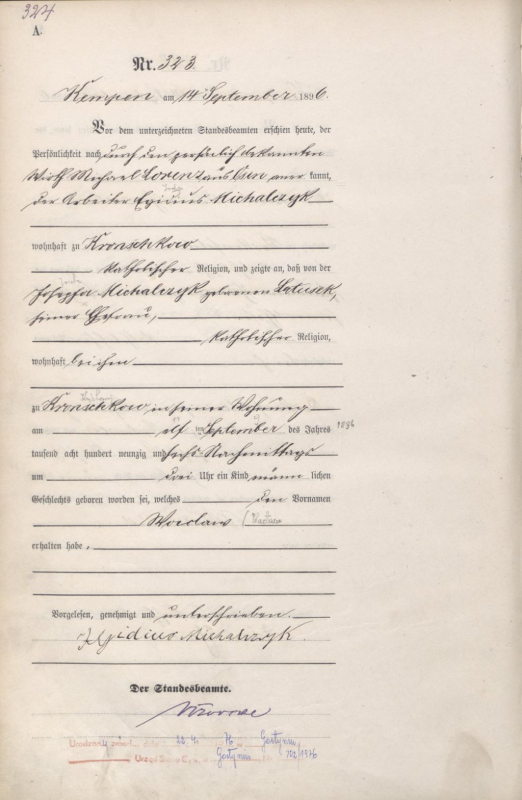 324
A.
Nr. 323
Kempen am 14 September 1896.
Vor dem unterzeichneten Standesbeamten erschien heute, der
Persönlichkeit nach durch den persönlich bekannten
Wirth Michael Lorenz aus aner kannt,
der Arbeiter Egidius Michalczyk
wohnhaft zu Kronschkow
katholischer Religion, und zeigte an, daß von der
Josepha Michalczyk geborenen
seiner Ehefrau,
katholischer Religion,
wohnhaft bei ihm
zu Kronschkow in seiner Wohnung
am elf ten September des Jahres 1896
tausend acht hundert neunzig und sechs Nachmittags
um drei Uhr ein Kind männ lichen
Geschlechts geboren worden sei, welches den Vornamen
Waclaw (Wacław
erhalten habe.
Vorgelesen, genehmigt und unterschrieben.
Egidius Michalczyk
Der Standesbeamte.
22. 4. 76 Gostynin
Urząd Gostynin 1976